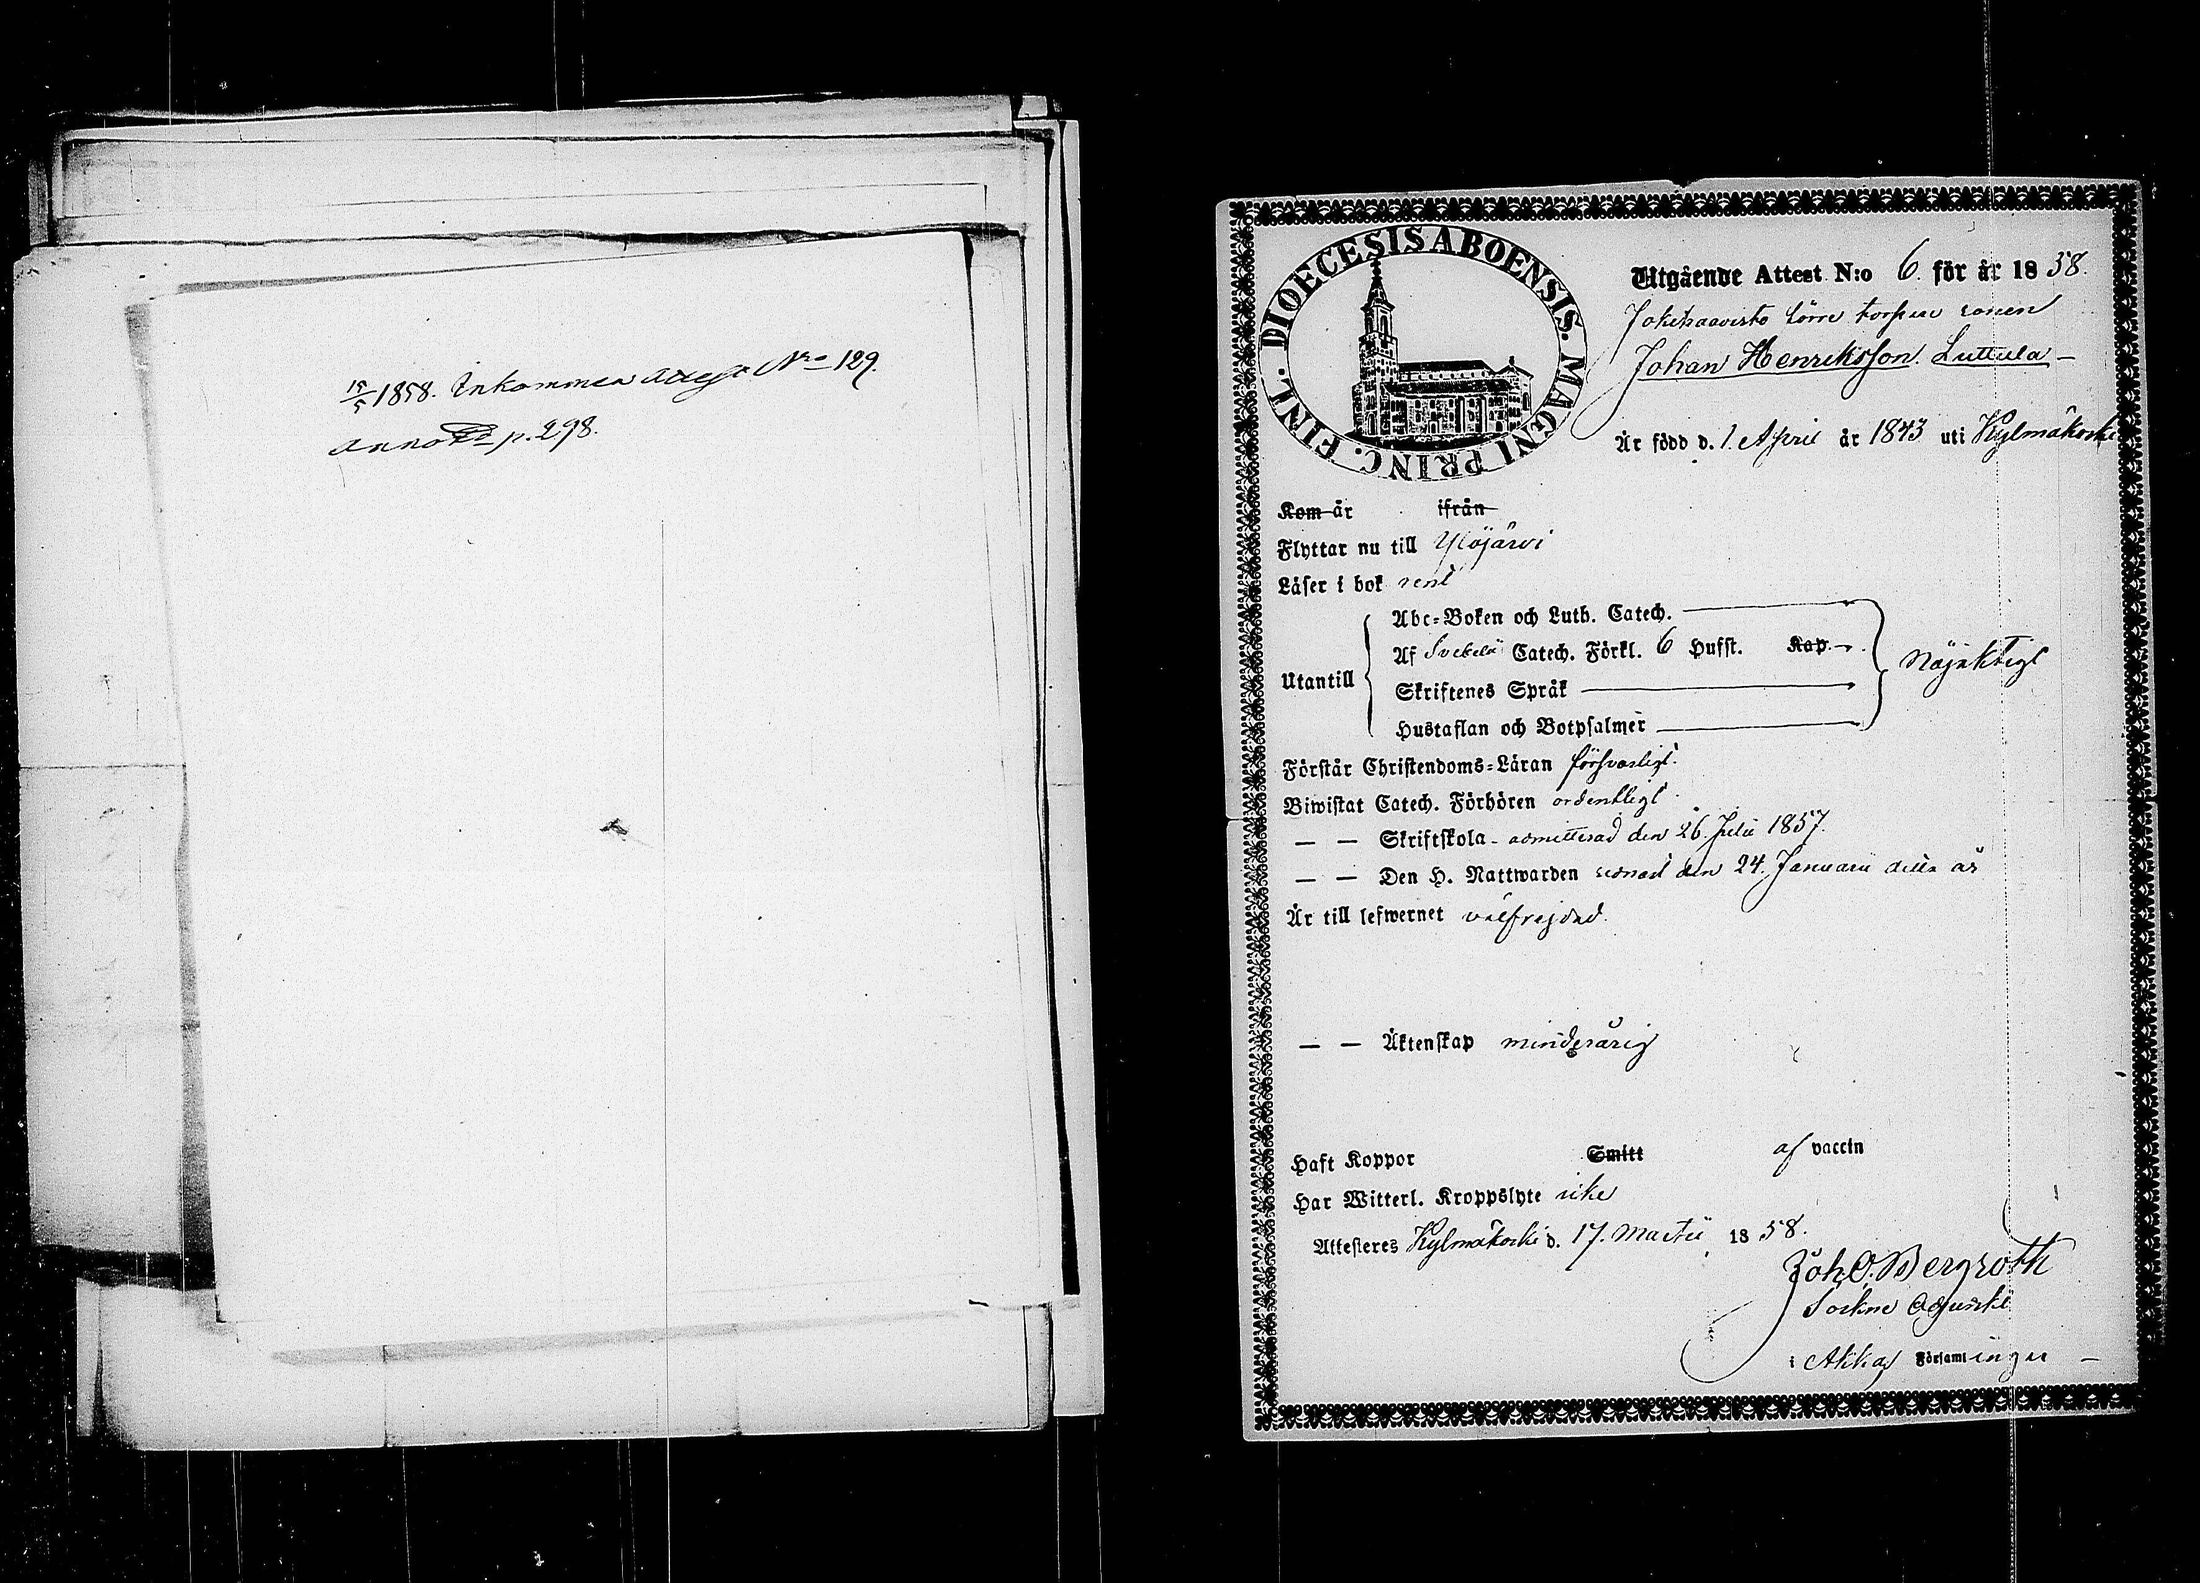 15/5 1858. Inkommen Attest No 129.
annot. p. 298.
DIOECESIS ABOENSIS. MAGNI PRINC. FINL.
Utgående Attest N:o 6. för år 1858.
torpare sonen
Johan Henriksson Luttula
Är född d. 1. April år 1843 uti Kylmäkoski
Kom år ifrån
Flyttar nu till Ylöjärvi
Läser i bok rent
Abc-Boken och Luth. Catech.
Af Svebelii Catech. Förkl. 6 Hufst. Kap.
Utantill
Nöjaktigt
Skriftenes Språk
Hustaflan och Botpsalmer
Förstår Christendoms-Läran försvarligt.
Biwistat Catech. Förhören ordentligt
— — Skriftskola admitterad den 26. Julii 1857.
— — Den H. Nattwarden senast den 24. Januarii detta år
Är till lefwernet välfrejdad.
— — Äktenskap minderårig
Haft Koppor Smitt af vaccin
Har Witterl. Kroppslyte icke
Attesteras Kylmäkoski d. 17. Martii 1858.
Joh. O. Bergroth
Sockne Adjunkt
i Akkas Församlingar